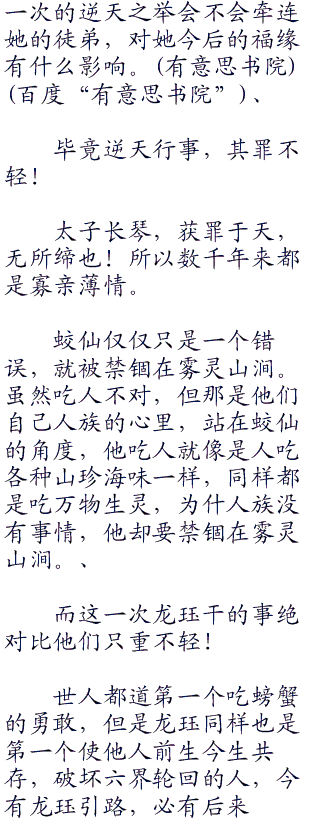 一次的逆天之举会不会牵连
她的徒弟，对她今后的福缘
有什么影响。(有意思书院)
(百度“有意思书院”)、
毕竟逆天行事，其罪不
轻！
太子长琴，获罪于天，
无所缔也！所以数千年来都
是寡亲薄情。
蛟仙仅仅只是一个错
误，就被禁锢在雾灵山涧。
虽然吃人不对，但那是他们
自己人族的心里，站在蛟仙
的角度，他吃人就像是人吃
各种山珍海味一样，同样都
是吃万物生灵，为什人族没
有事情，他却要禁锢在雾灵
山涧。、
而这一次龙珏干的事绝
对比他们只重不轻！
世人都道第一个吃螃蟹
的勇敢，但是龙珏同样也是
第一个使他人前生今生共
存，破坏六界轮回的人，今
有龙珏引路，必有后来